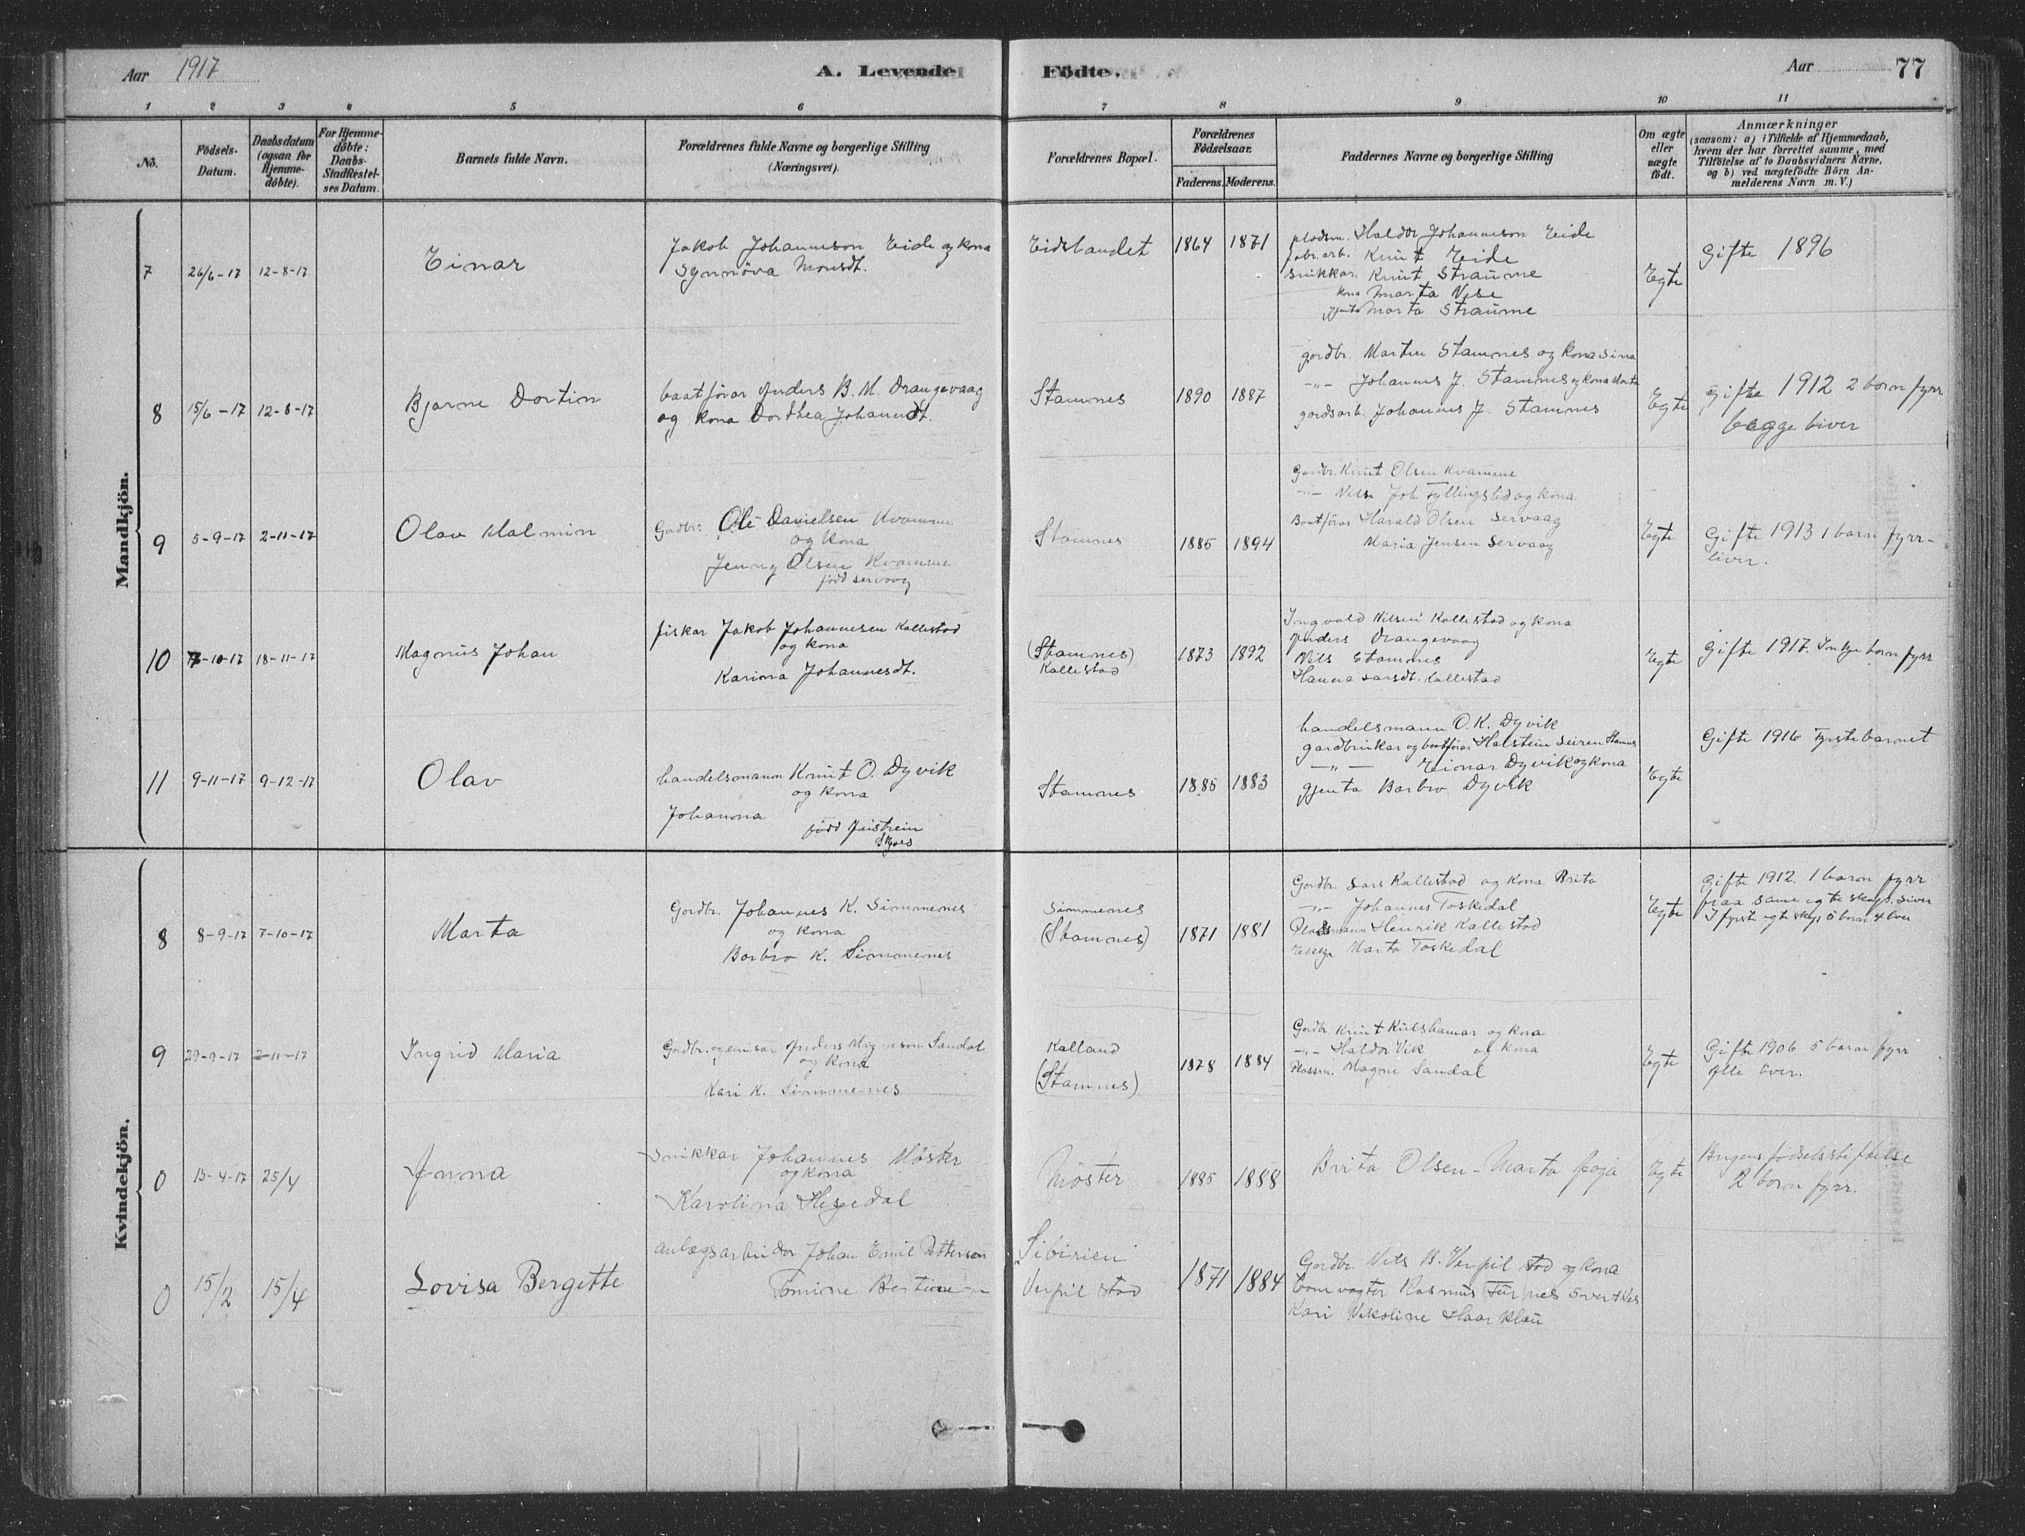 Aar 1917
A. Levende Födte.
Aar 77
1 2 3 4 5 6 7 8 9 10 11
No.
Födsels-Datum.
Daabsdatum (ogsaa for Hjemme-döbte).
For Hjemme-döbte: Daabs-Stadfæstel-ses Datum.
Barnets fulde Navn.
Forældrenes fulde Navne og borgerlige Stilling
(Næringsvei).
Forældrenes Bopæl.
Forældrenes Födselsaar.
Faderens. Moderens.
Faddernes Navne og borgerlige Stilling
Om ægte eller uægte födt.
Anmærkninger
(saasom: a) i Tilfælde af Hjemmedaab,
hvem der har forrettet samme, med
Tilföielse af to Daabsvidners Navne,
og b) ved uægtefödte Börn An-
melderens Navn m. V.)
Mandkjön.
7 26/6-17 12-8-17 Einar
Jakob Johanneson Eide og kona
Synnöva Monsdt.
Eidslandet 1864 1871
pladsm. Haldor Johanneson Eide
fabr.arb. Knut Eide
snikkar Knut Straume
kona Marta Vese
gjenta Marta Straume
Egte
Gifte 1896
8 15/6-17 12-8-17 Bjarne Dortin
baatförar Anders B. M. Drangevaag
og kona Dorthea Johannsdt.
Stamnes 1890 1887
gardbr. Martin Stamnes og kona Sina
-"- Johannes J. Stamnes og kona Marta
gardsarb. Johannes J. Stamnes
Egte
Gifte 1912 2 born fyrr
begge liver
9 5-9-17 2-11-17 Olav Malmin
Gardbr. Ole Danielsen Kvamme
og kona
Jenny Olsen Kvamme
född Servaag
Stamnes 1885 1894
Gardbr. Knut Olsen Kvamme
-"- Nils Joh Fyllingslid og kona
Baatförar Harald Olsen Servaag
Maria Jensen Servaag
Egte
Gifte 1913 1 barn fyrr-
liver.
10 7-10-17 18-11-17 Magnus Johan
fiskar Jakob Johannesen Kallestad
og kona
Karina Johannesdt.
(Stamnes)
Kallestad
1873 1892
Ingvald Nilsen Kallestad og kona
Anders Drangevaag
Nils Stamnes
Hanna Larsdt. Kallestad
Egte
Gifte 1917. Inkje born fyrr
11 9-11-17 9-12-17 Olav
handelsmann Knut O. Dyvik
og kona
Johanna
född Austrein
Stamnes 1885 1883
handelsmann O. K. Dyvik
gardbrukar og baatförar Halstein Seiren Stamnes
-"- Einar Dyvik og kona
gjenta Barbro Dyvik
Egte
Gifte 1916 Fyrste barnet
Kvindekjön.
8 8-9-17 7-10-17 Marta
Gardbr. Johannes K. Simmenes
og kona
Barbro K. Simmenes
Simmenes
(Stamnes)
1871 1881
Gardbr. Lars Kallestad og kona Brita
-"- Johannes Toskedal
Pladsmann Henrik Kallestad
Marta Toskedal
Egte
Gifte 1912. 1 barn fyrr
fraa same egteskap. Liver
I fyrste egteskap 5 born 4 liver
9 29-9-17 2-11-17 Ingrid Maria
Gardbr. og emisær Anders Magneson Sandal
og kona
Kari K. Simmenes
Kalland
(Stamnes)
1878 1884
Gardbr Knut Kulshamar og kona
-"- Haldor Vik og kona
Plassm. Magne Sandal
Egte
Gifte 1906 5 born fyrr
Alle liver.
0 13-4-17 25/4 Anna
Snikkar Johannes Möster
og kona
Karolina Hegedal
Möster 1885 1888
Brita Olsen - Marta Aga
Egte
Bergens födselsstiftelse
2 born fyrr.
0 15/2 15/4 Lovisa Bergette
Anlægsarbeider Johan Emil Petterson
Tomine Bertine -"-
Sibirien
Verpilstad
1871 1884
Gardbr. Nils B. Verpilstad og kona
Banevagter Rasmus Furnes
Kari Nikoline Haarklau